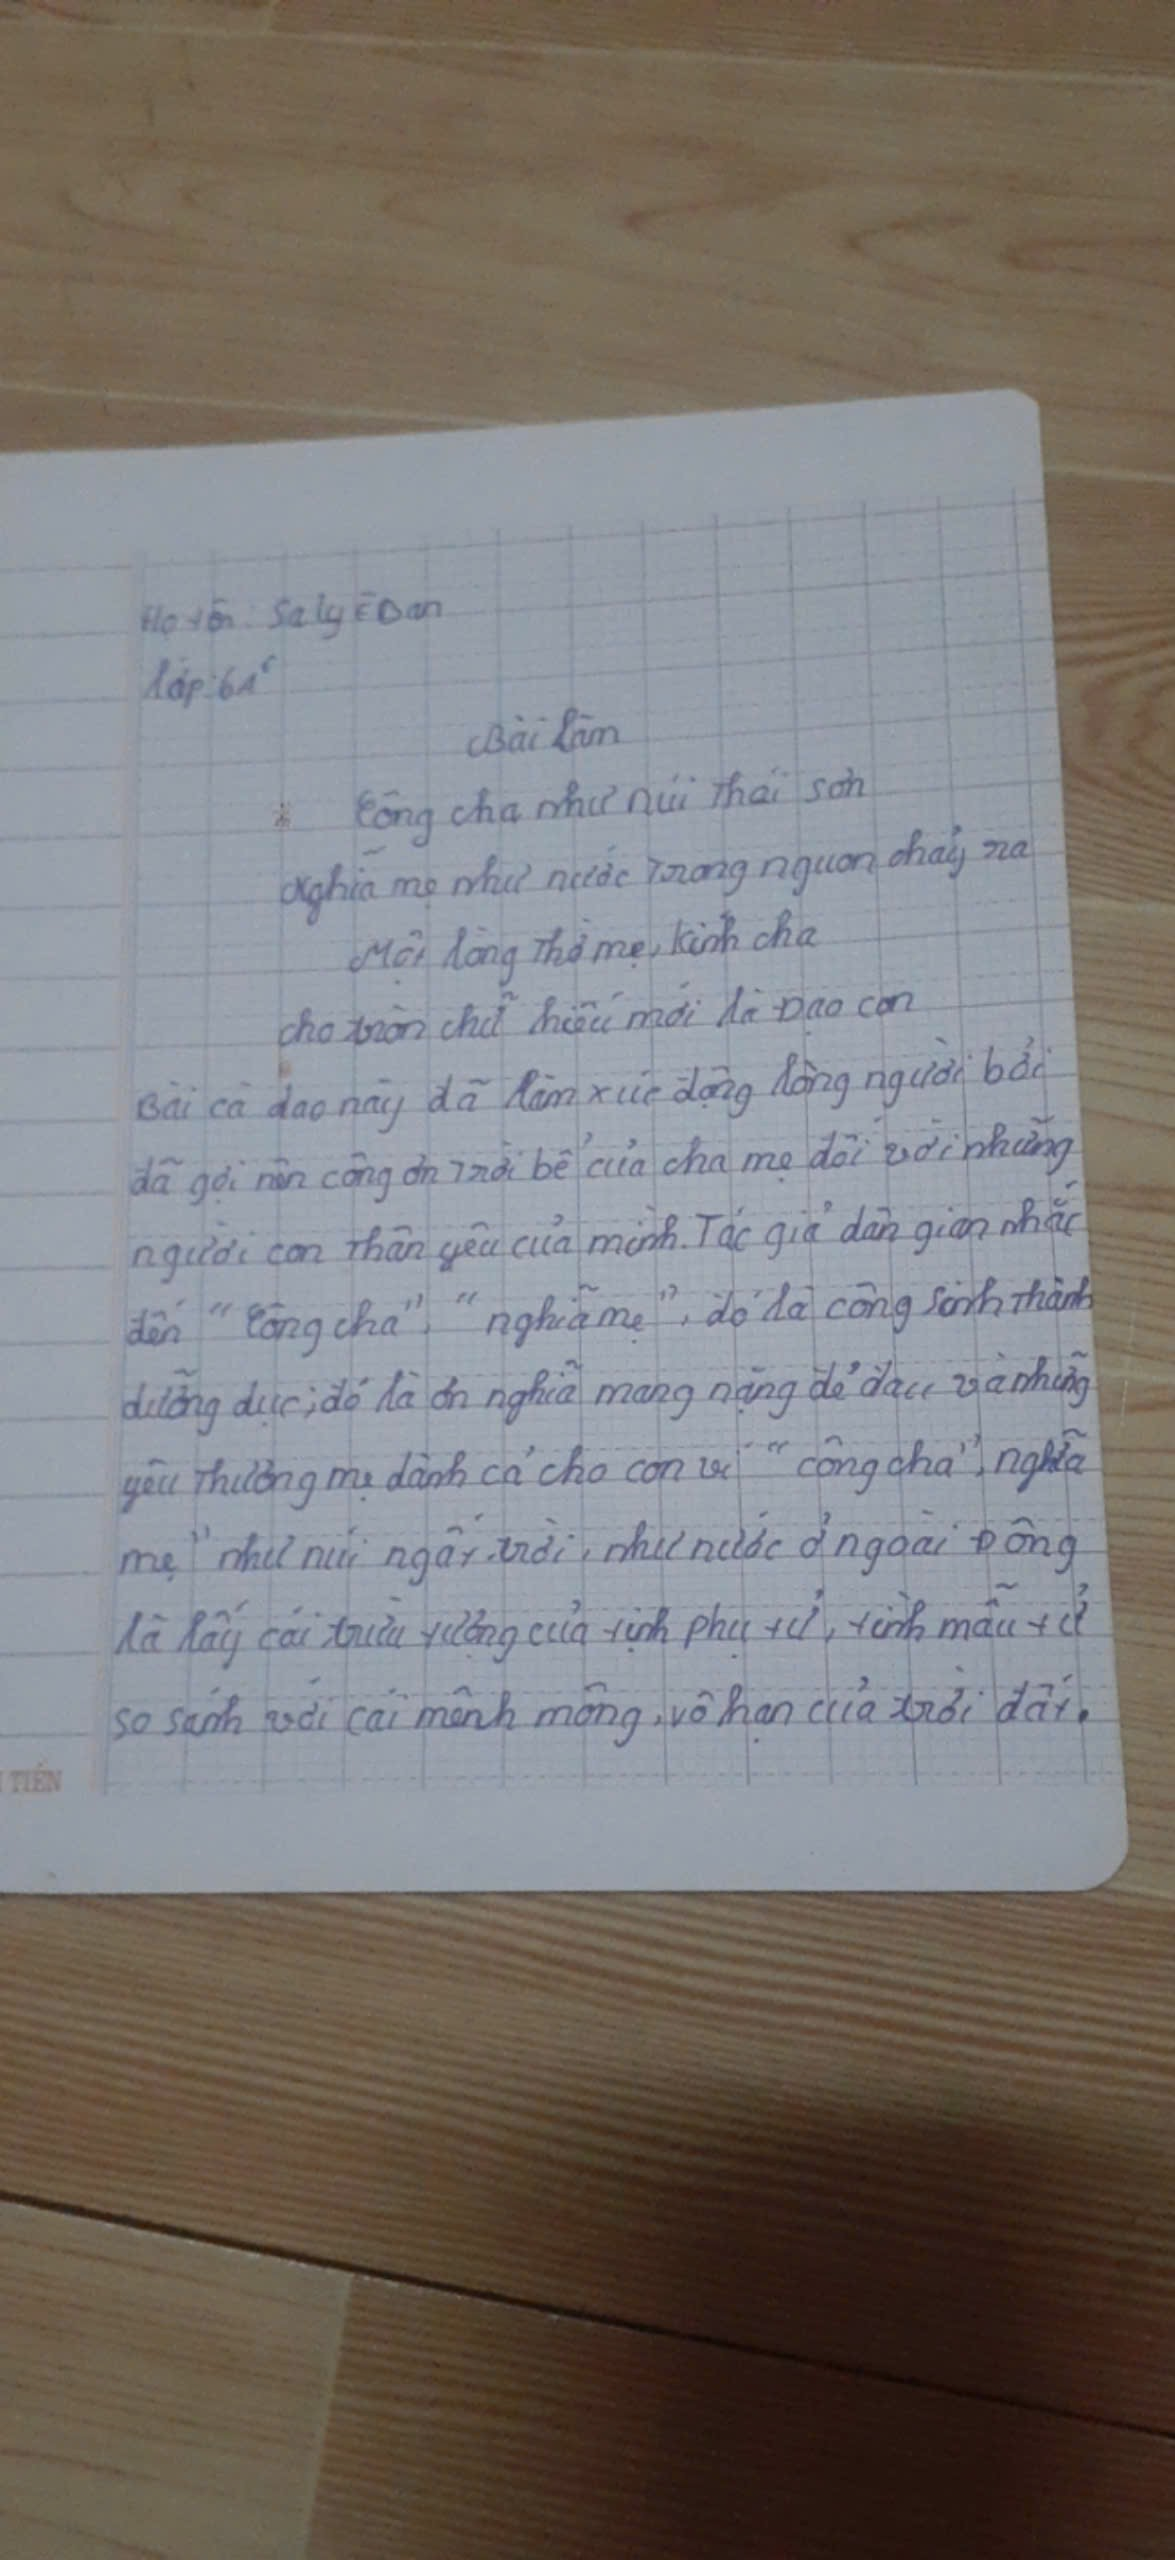 Họ tên: Saly ÊBan
Lớp: 6A6
Bài làm
* Công cha như núi Thái sơn
Nghĩa mẹ như nước Trong nguon chảy ra
Một lòng Thờ mẹ, kính cha
cho tròn chữ hiếu mới là Đạo con
Bài ca dao này đã làm xúc động lòng người bởi
đã gợi nên công ơn Trời bể của cha mẹ đối với những
người con Thân yêu của mình. Tác giả dân gian nhắc
đến "Công cha", "nghĩa mẹ", đó là công sinh Thành
dưỡng dục; đó là ơn nghĩa mang nặng đẻ đau và những
yêu Thương mẹ dành cả cho con ví "công cha", nghĩa
mẹ" như núi ngất trời, như nước ở ngoài Đông
là lấy cái trừu tượng của tình phụ tử, tình mẫu tử
so sánh với cái mênh mông, vô hạn của trời đất.
TIẾN